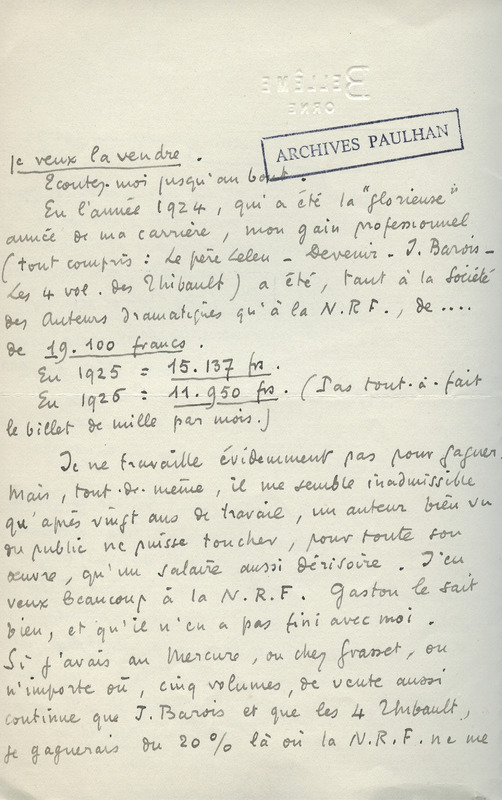 BELLÊME
ORNE
ARCHIVES PAULHAN
je veux la vendre.
Ecoutez-moi jusqu'au bout.
En l'année 1924, qui a été la "glorieuse"
année de ma carrière, mon gain professionnel
(tout compris : Le père Leleu - Devenir - J. Barois -
Les 4 vol. des Thibault) a été, tant à la Société
des Auteurs dramatiques qu'à la N.R.F., de ....
de 19.100 francs.
En 1925 = 15.137 frs.
En 1926 = 11.950 frs. (Pas tout-à-fait
le billet de mille par mois.)
Je ne travaille évidemment pas pour gagner.
Mais, tout-de-même, il me semble inadmissible
qu'après vingt ans de travail, un auteur bien vu
du public ne puisse toucher, pour toute son
œuvre, qu'un salaire aussi dérisoire. J'en
veux beaucoup à la N.R.F. Gaston le sait
bien, et qu'il n'en a pas fini avec moi.
Si j'avais au Mercure, ou chez Grasset, ou
n'importe où, cinq volumes, de vente aussi
continue que J. Barois et que les 4 Thibault,
je gagnerais du 20% là où la N.R.F. ne me